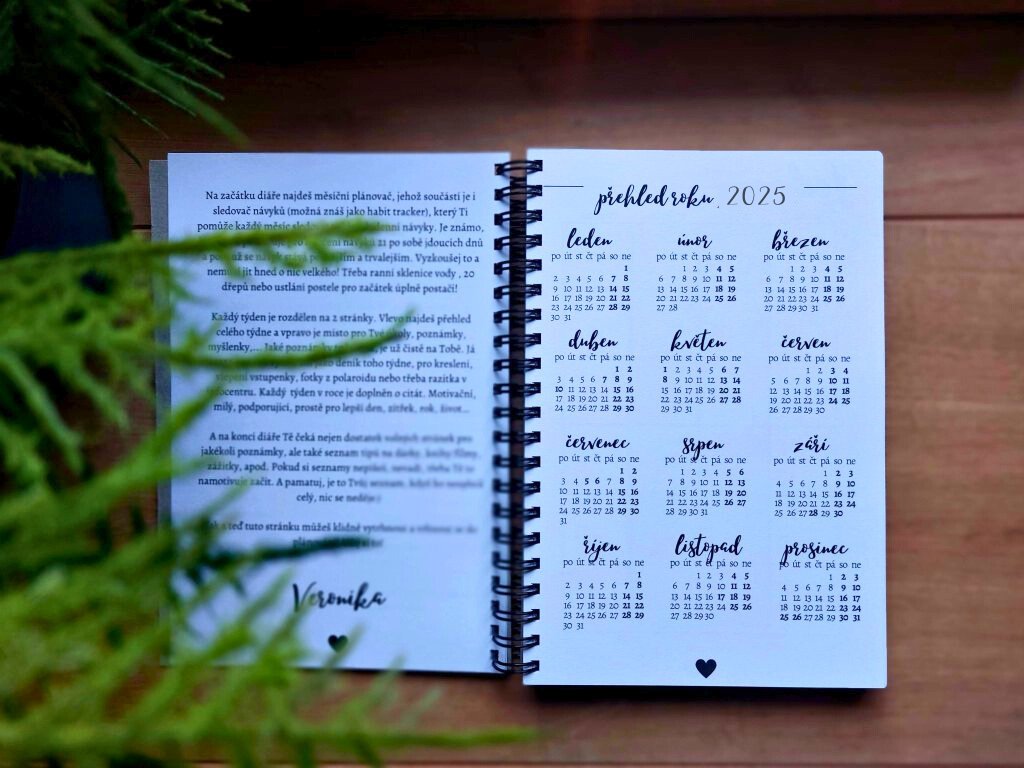 Na začátku diáře najdeš měsíční plánovač, jehož součástí je i
sledovač návyků (možná znáš jako habit tracker), který Ti
pomůže každý měsíc návyky. Je známo,
návyku 21 po sobě jdoucích dnů
a trvalejším. Vyzkoušej to a
jít hned o nic velkého! Třeba ranní sklenice vody , 20
dřepů nebo ustlání postele pro začátek úplně postačí!
Každý týden je rozdělen na 2 stránky. Vlevo najdeš přehled
celého týdne a vpravo je místo pro Tvé úkoly, poznámky,
myšlenky,... Jaké poznámky je už čistě na Tobě. Já
jako deník toho týdne, pro kreslení,
vstupenky, fotky z polaroidu nebo třeba razítka v
Každý týden v roce je doplněn o citát. Motivační,
milý, podporující, prostě pro lepší den, zítřek, rok, život...
A na konci diáře Tě čeká nejen dostatek volných stránek pro
jakékoli poznámky, ale také seznam tipů na dárky, knihy filmy,
zážitky, apod. Pokud si seznamy nepíšeš, nevadí, třeba Tě to
namotivuje začít. A pamatuj, je to Tvůj seznam,
celý, nic se neděje :)
a teď tuto stránku můžeš klidně vytrhnout a
Veronika
přehled roku 2025
leden
po út st čt pá so ne
1
2 3 4 5 6 7 8
9 10 11 12 13 14 15
16 17 18 19 20 21 22
23 24 25 26 27 28 29
30 31
únor
po út st čt pá so ne
1 2 3 4 5
6 7 8 9 10 11 12
13 14 15 16 17 18 19
20 21 22 23 24 25 26
27 28
březen
po út st čt pá so ne
1 2 3 4 5
6 7 8 9 10 11 12
13 14 15 16 17 18 19
20 21 22 23 24 25 26
27 28 29 30 31
duben
po út st čt pá so ne
1 2
3 4 5 6 7 8 9
10 11 12 13 14 15 16
17 18 19 20 21 22 23
24 25 26 27 28 29 30
květen
po út st čt pá so ne
1 2 3 4 5 6 7
8 9 10 11 12 13 14
15 16 17 18 19 20 21
22 23 24 25 26 27 28
29 30 31
červen
po út st čt pá so ne
1 2 3 4
5 6 7 8 9 10 11
12 13 14 15 16 17 18
19 20 21 22 23 24 25
26 27 28 29 30
červenec
po út st čt pá so ne
1 2
3 4 5 6 7 8 9
10 11 12 13 14 15 16
17 18 19 20 21 22 23
24 25 26 27 28 29 30
31
srpen
po út st čt pá so ne
1 2 3 4 5 6
7 8 9 10 11 12 13
14 15 16 17 18 19 20
21 22 23 24 25 26 27
28 29 30 31
září
po út st čt pá so ne
1 2 3
4 5 6 7 8 9 10
11 12 13 14 15 16 17
18 19 20 21 22 23 24
25 26 27 28 29 30
říjen
po út st čt pá so ne
1
2 3 4 5 6 7 8
9 10 11 12 13 14 15
16 17 18 19 20 21 22
23 24 25 26 27 28 29
30 31
listopad
po út st čt pá so ne
1 2 3 4 5
6 7 8 9 10 11 12
13 14 15 16 17 18 19
20 21 22 23 24 25 26
27 28 29 30
prosinec
po út st čt pá so ne
1 2 3
4 5 6 7 8 9 10
11 12 13 14 15 16 17
18 19 20 21 22 23 24
25 26 27 28 29 30 31